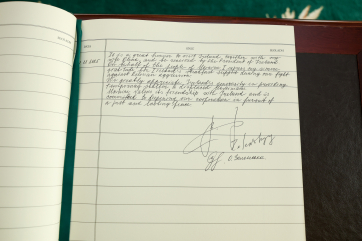 It is a great honour to visit Ireland together with my
wife Olena, and be received by the President of Ireland
On behalf of the people of Ukraine I express my sincere
gratitude for Ireland's steadfast support during our fight
against Russian aggression.
We greatly appreciate Ireland's generosity in providing
temporary shelter to displaced Ukrainians.
Ukraine values its friendship with Ireland and is
committed to deepening our cooperation in pursuit of
a just and lasting peace.